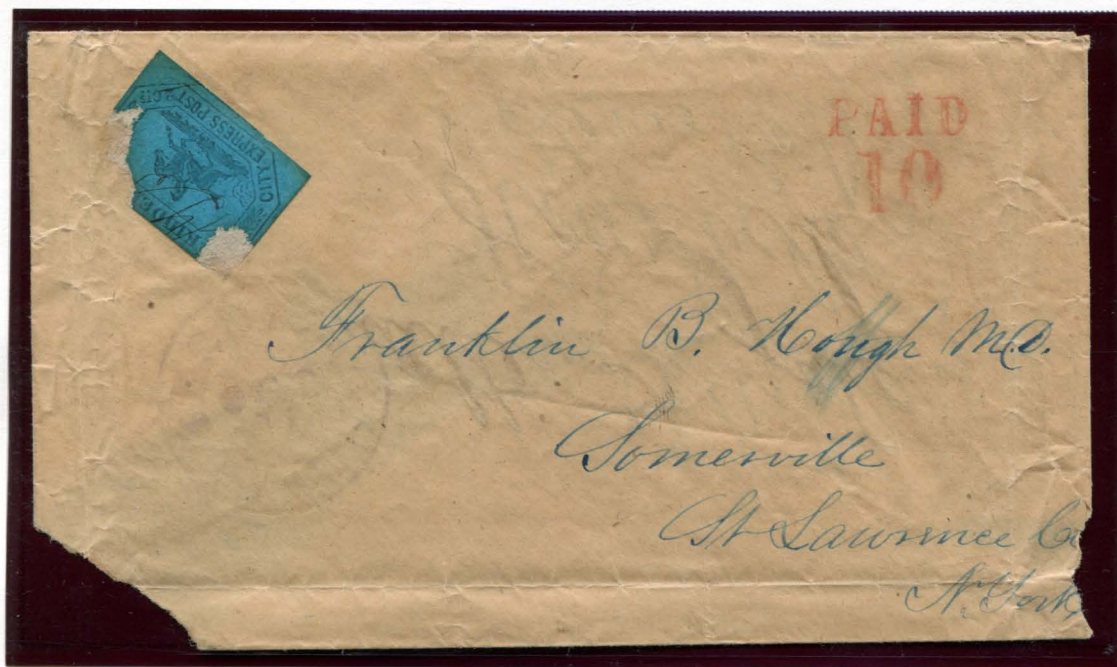 CITY EXPRESS POST
PAID
10
Franklin B. Hough M.D.
Somerville
St Lawrence Co
N. York,